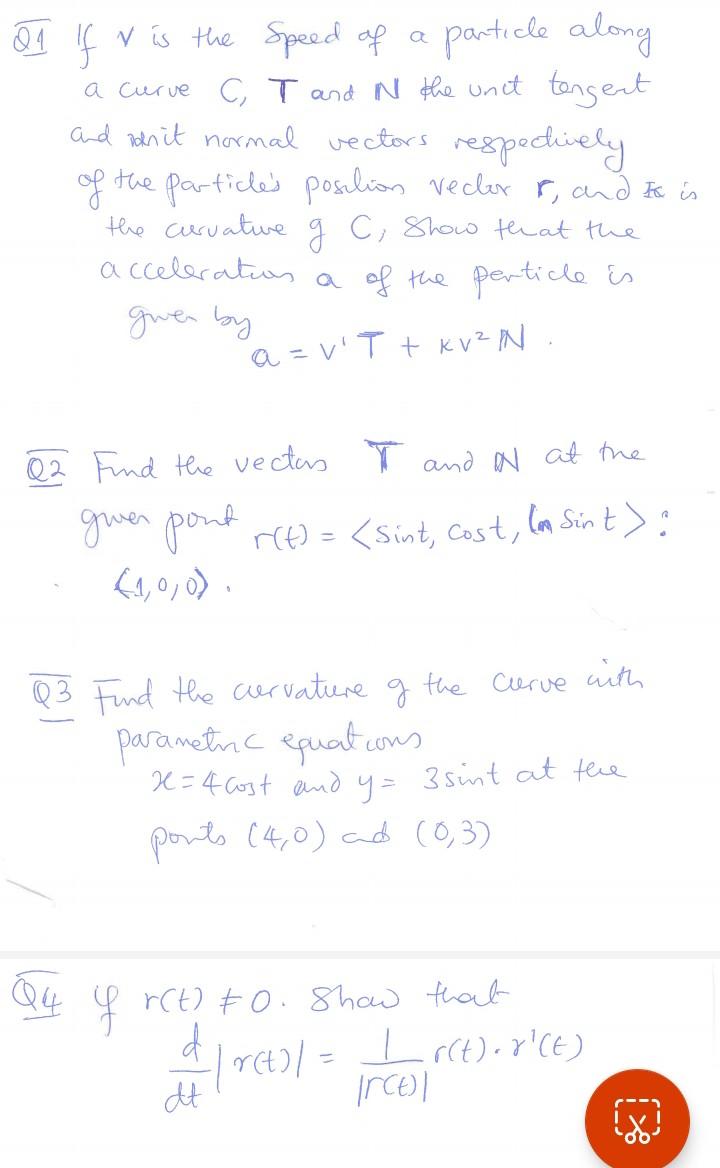 Q1 If v is the speed of a particle along
a curve C, T and N the unit tangent
and unit normal vectors respectively
of the particle's position vector r, and κ is
the curvature of C, Show that the
acceleration a of the particle is
given by
a = v' T + κv² N .
Q2 Find the vectors T and N at the
given point r(t) = <sint, cost, ln sin t> :
(1,0,0) .
Q3 Find the curvature of the curve with
parametric equations
x = 4 cost and y = 3 sint at the
points (4,0) and (0,3)
Q4 If r(t) ≠ 0. Show that
d/dt |r(t)| = 1/|r(t)| r(t) . r'(t)